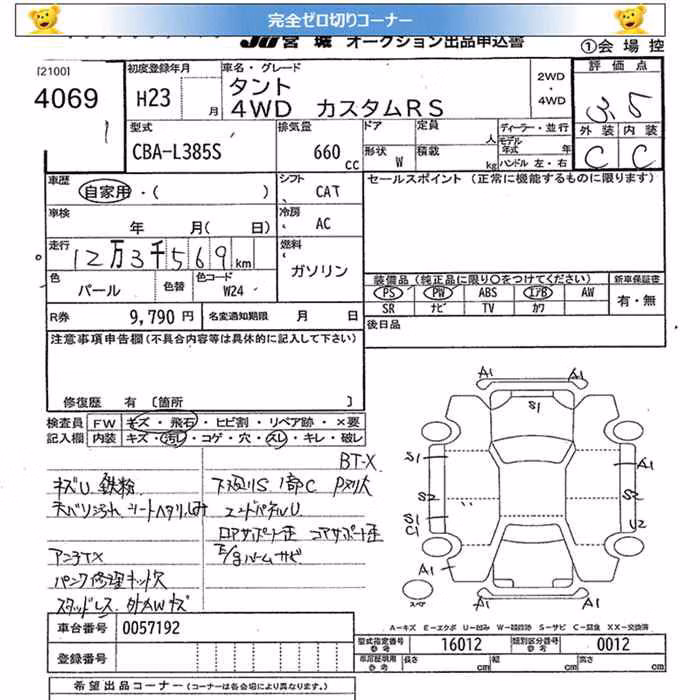 完全ゼロ切りコーナー
JU宮城 オークション出品申込書
①会場控
[2100]
4069
初度登録年月
H23 月
車名・グレード
タント
4WD カスタムRS
2WD
・
4WD
評価点
3.5
型式
CBA-L385S
排気量
660 cc
ドア
形状 W
定員 人
積載 kg
ディーラー・並行
モデル年式 年
ハンドル 左・右
外装 内装
C C
車歴
自家用・( )
シフト
CAT
セールスポイント (正常に機能するものに限ります)
車検
年 月( 日)
冷房
AC
走行
12万3千569km
燃料
ガソリン
色
パール
色替
色コード
W24
装備品(純正品に限り○をつけてください)
新車保証書
PS PW ABS エアB AW
SR ナビ TV カワ
有・無
R券 9,790円
名変通知期限 月 日
後日品
注意事項申告欄(不具合内容等は具体的に記入して下さい)
修復歴 有 [箇所 ]
検査員
記入欄
FW キズ・飛石・ヒビ割・リペア跡・×要
内装 キズ・汚レ・コゲ・穴・スレ・キレ・破レ
BT-X
キズU 鉄粉
下廻りS 1部C Pヌリ欠
天バリ汚れ シートヘタリ
エンドパネルU
ロアサポート歪 コアサポート歪
E/gルームサビ
アンテナX
パンク修理キット欠
スタッドレス 外AWキズ
A1 A1
S1
S1
A1
S2
S2
S1
C1
U2
A1
A1
A1
スペア
A−キズ E−エクボ U−凹み W−補修跡 S−サビ C−腐食 XX−交換済
車台番号 0057192
型式指定番号
参考
16012
類別区分番号
参考
0012
登録番号
車庫証明用
参考
長さ cm
幅 cm
高さ cm
希望出品コーナー(コーナーは各会場により異なります。)